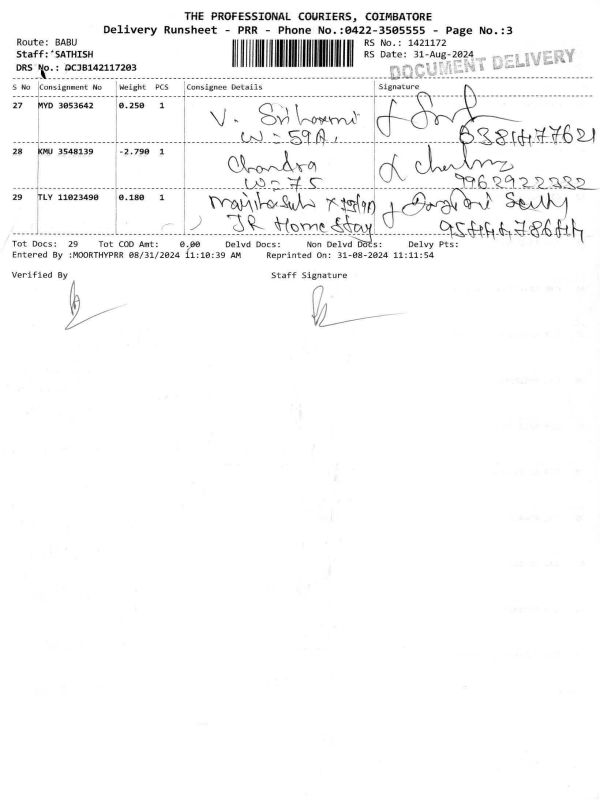 THE PROFESSIONAL COURIERS, COIMBATORE
Delivery Runsheet - PRR - Phone No.:0422-3505555 - Page No.:3
Route: BABU
RS No.: 1421172
Staff: SATHISH
RS Date: 31-Aug-2024
DRS No.: DCJB142117203
DOCUMENT DELIVERY
S No Consignment No Weight PCS Consignee Details Signature
27 MYD 3053642 0.250 1 V.
W = 59A.
28 KMU 3548139 -2.790 1 Chandra
W = 75
9962922332
29 TLY 11023490 0.180 1
JR Home Stay
Tot Docs: 29 Tot COD Amt: 0.00 Delvd Docs: Non Delvd Docs: Delvy Pts:
Entered By :MOORTHYPRR 08/31/2024 11:10:39 AM Reprinted On: 31-08-2024 11:11:54
Verified By Staff Signature